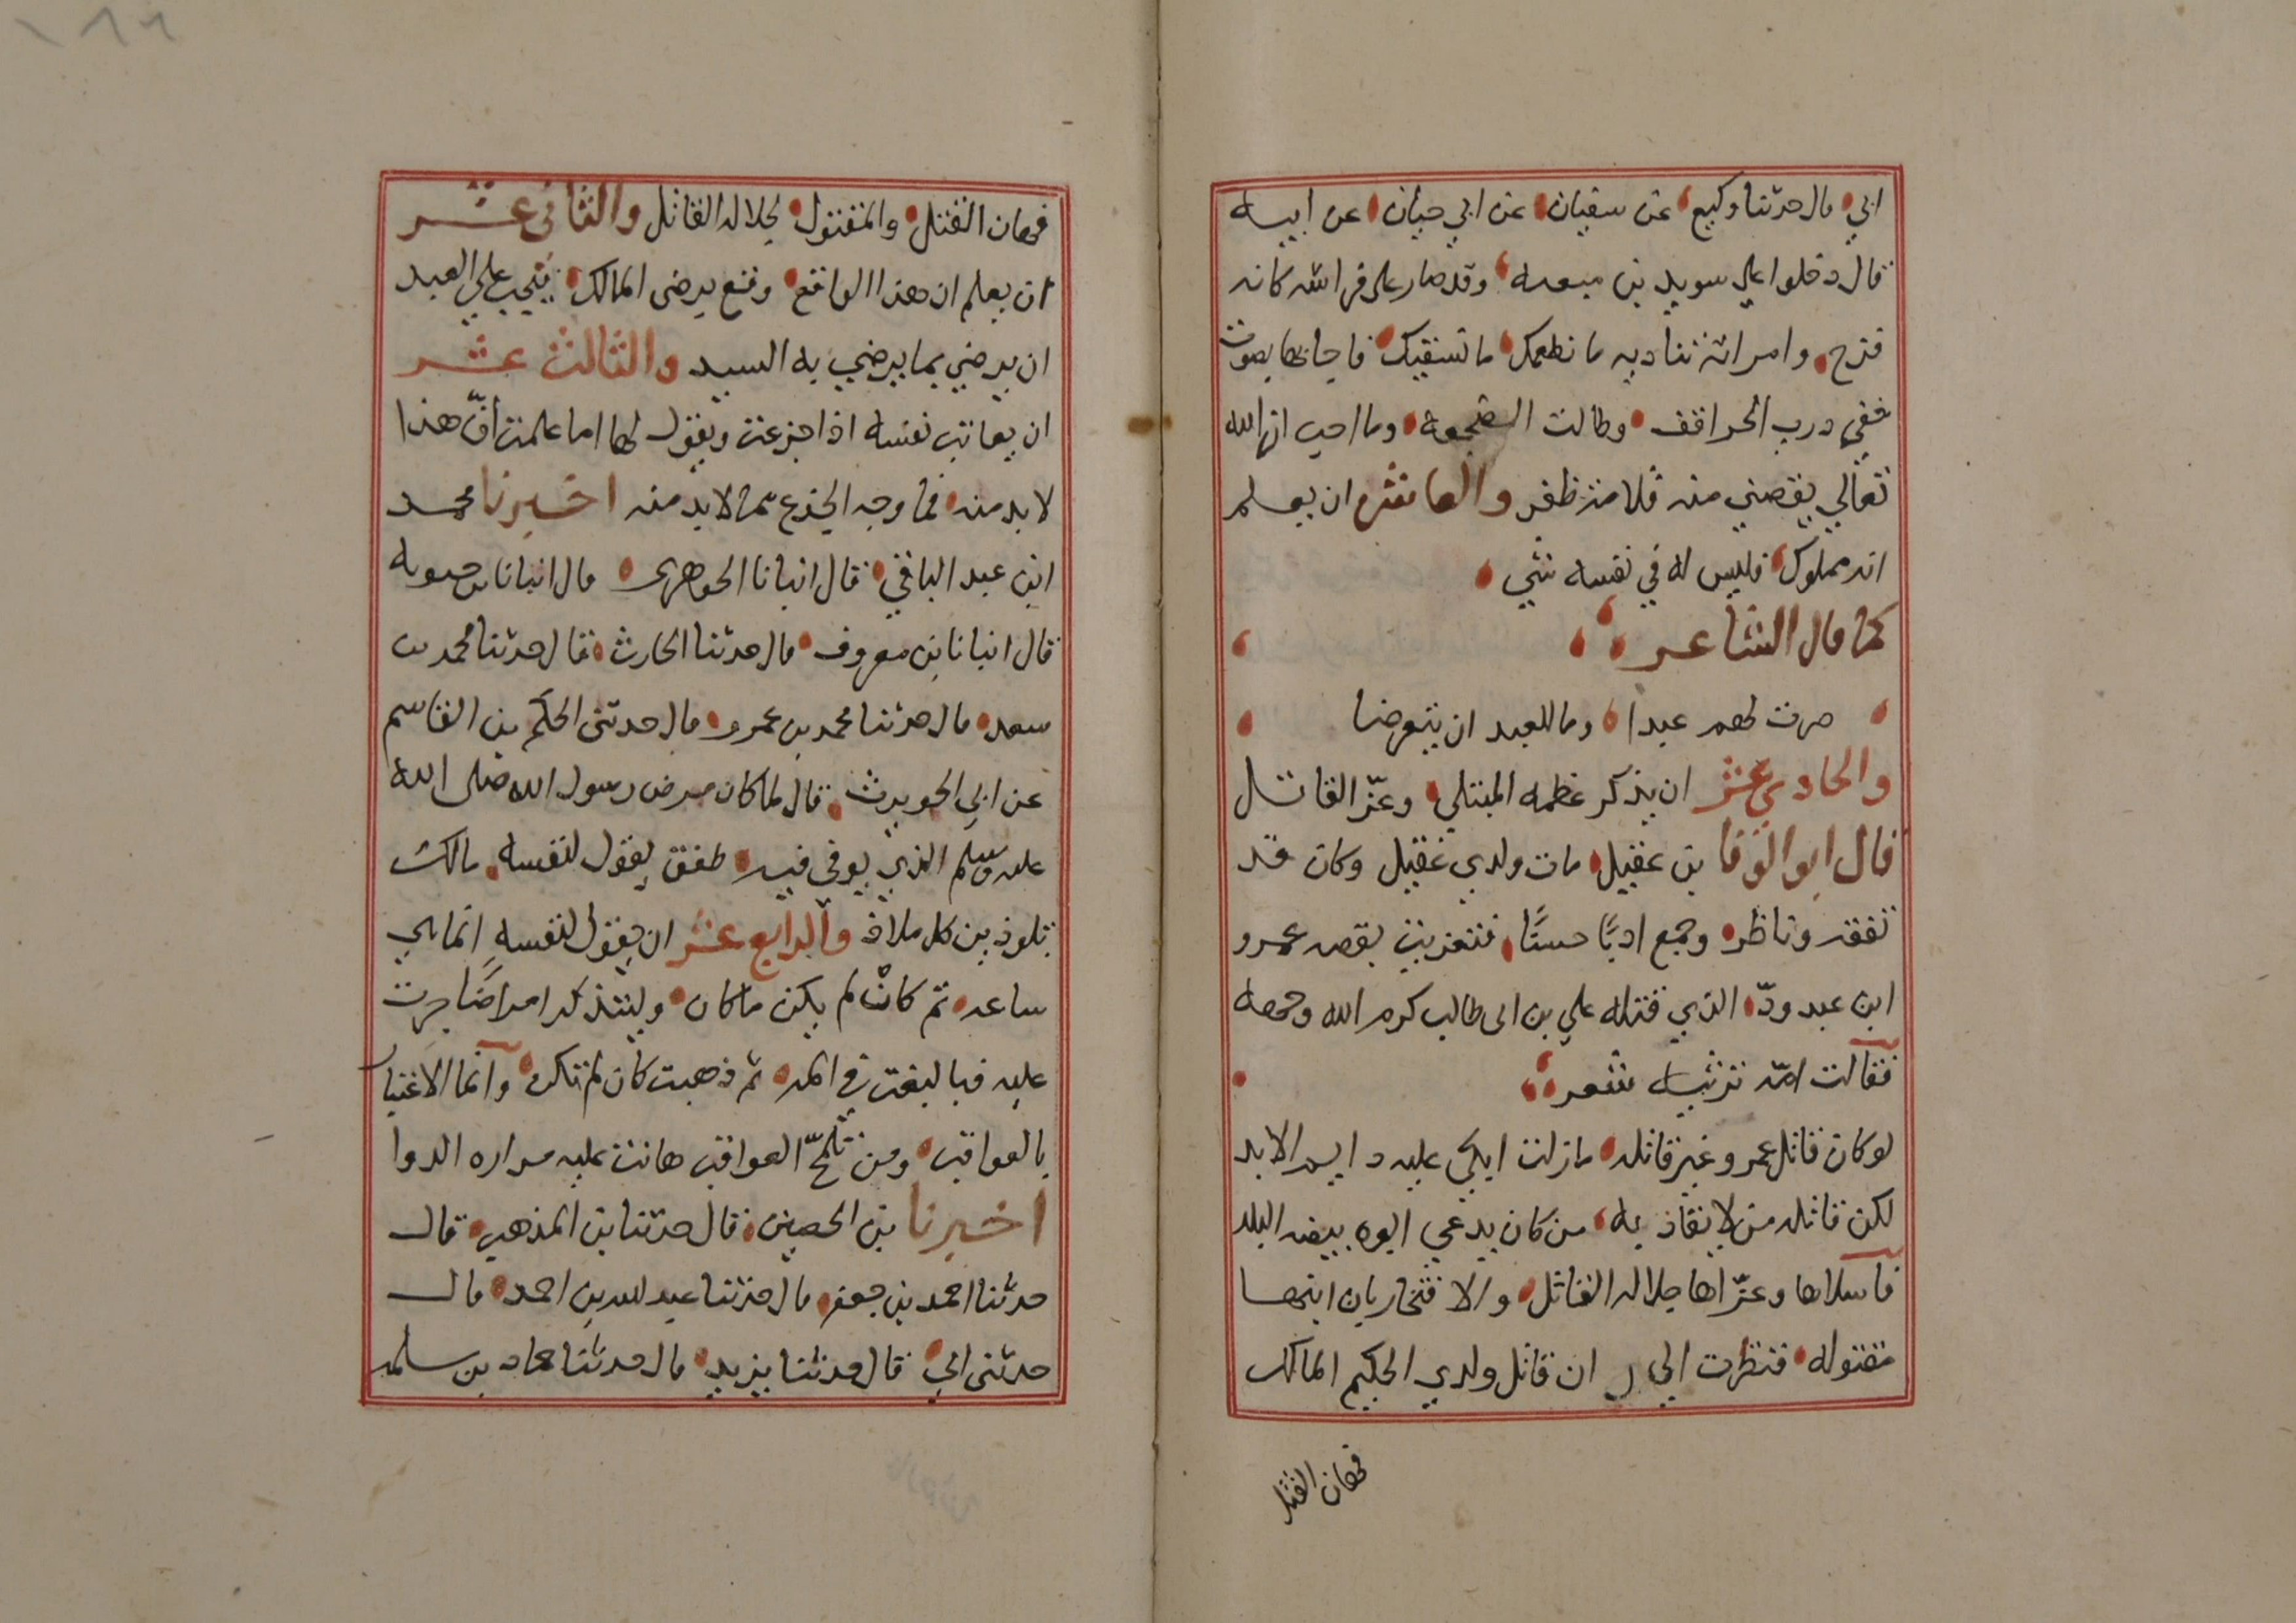 ابي قال حدثنا وكيع عن سفيان عن ابي حيان عن ابيه
قال دخلوا علي سويد بن مثعبه وقد صار على فراشه كانه
فرخ وامراته تناديه ما نطعمك ما نسقيك فاجابها بصوت
خفي درب الحراقف وطالت الضجعة وما احب ان الله
تعالي ينقصني منه قلامة ظفر والعاشر ان يعلم
انه مملوك فليس له في نفسه شي
كما قال الشاعر
صرت لهم عبدا وما للعبد ان يتعرضا
والحادي عشر ان يذكر عظمه المبتلي وعزّ القاتل
قال ابو الوفا بن عقيل مات ولدي عقيل وكان قد
تفقه وناظر وجمع ادبًا حسنًا فتعزيت بقصه عمرو
ابن عبد ودّ الذي قتله علي بن ابى طالب كرم الله وجهه
فقالت امّه ترثيه شعر
لو كان قاتل عمرو غير قاتله مازلت ابكي عليه دايم الابد
لكن قاتله من لا يقاد به من كان يدعي ابوه بيضه البلد
فاسلاها وعزّاها جلاله القاتل والافتخار بان ابنها
مقتوله فنظرت الي ان قاتل ولدي الحكيم المالك
فهان القتل
فهان القتل والمقتول لجلاله القاتل والثاني عشر
ان يعلم ان هذا الواقع وقع برضى المالك فيجب علي العبد
ان يرضي بما يرضي به السيد والثالث عشر
ان يعاتب نفسه اذا جزعت ويقول لها اما علمت انّ هذا
لا بد منه فما وجه الجزع مما لا بد منه اخبرنا محمد
ابن عبد الباقي قال انبانا الجوهرى قال انبانا بن حيويه
قال انبانا بن معروف قال حدثنا الحارث قال حدثنا محمد بن
سعد قال حدثنا محمد بن عمرو قال حدثنى الحكم بن القاسم
عن ابي الحويرث قال لما كان مرض رسول الله صلى الله
عليه وسلم الذي يوفي فيه طفق يقول لنفسه مالك
تلوذين كل ملاذ والرابع عشر ان يقول لنفسه انما هي
ساعه ثم كان لم يكن ما كان وليتذكر امراضًا جرت
عليه فبالغت في المه ثم ذهبت كان لم تكن وانما الاعتبار
بالعواقب ومن تلمّح العواقب هانت عليه مراره الدوا
اخبرنا بن الحصين قال حدثنا بن المذهب قال
حدثنا احمد بن جعفر قال حدثنا عبد الله بن احمد قال
حدثنى ابي قال حدثنا يزيد قال حدثنا حماد بن سلمه